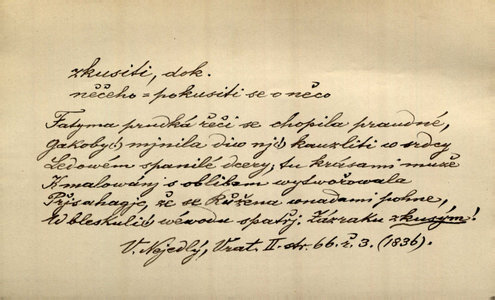 zkusiti, dok.
něčeho = pokusiti se o něco
Fatyma prudká řeči se chopila praudné,
Gakoby(!) mjnila diw nj(!) kauzliti w srdcy
Ledowém spanilé dcery, tu krásami muže
K malowánj s oblibem wytwořowala
Přjsahagjc, že se Růžena wnadami pohne,
W bleskuli(!) wéwodu spatřj. Zázraku zkusým!
V. Nejedlý, Vrat. II. str. 66. ř. 3. (1836).